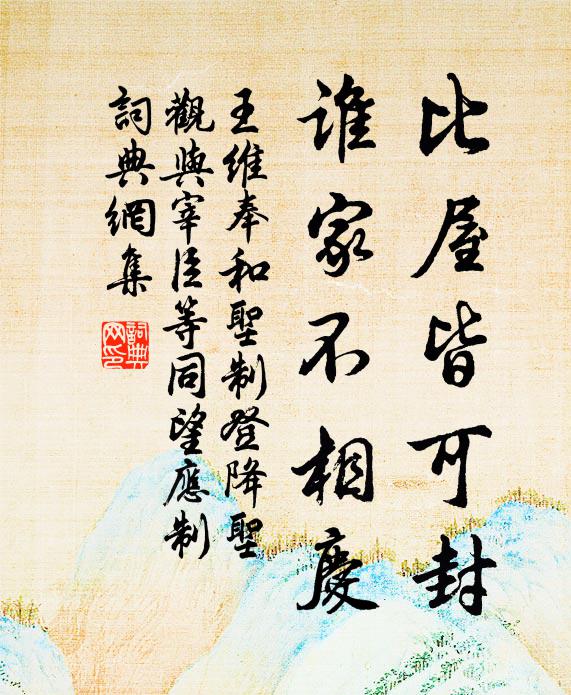 比屋皆可封
谁家不相慶
王維奉和聖制登降聖
觀與宰臣等同望應制
詞典網集
詞典
网印